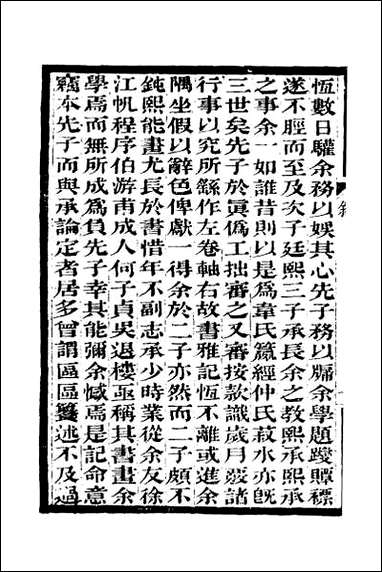 恆數日驩余務以娛其心先子務以牖余學題跋贉褾
遂不脛而至及次子廷熙三子承長余之教熙承熙承
之事余一如誰昔則以是爲韋氏籝經仲氏菽水亦旣
三世矣先子於眞僞工拙審之又審按款識歲月發諸
行事以究所繇作左卷軸右故書雅記恆不離或進余
隅坐假以辭色俾獻一得余於二子亦然而二子頗不
鈍熙能畫尤長於書惜年不副志承少時業從余友徐
江帆程序伯游甫成人何子貞吳退樓亟稱其書畫余
學焉而無所成爲負先子幸其能彌余憾焉是記命意
竊本先子而與承論定者居多曾謂區區纂述不及過
敘